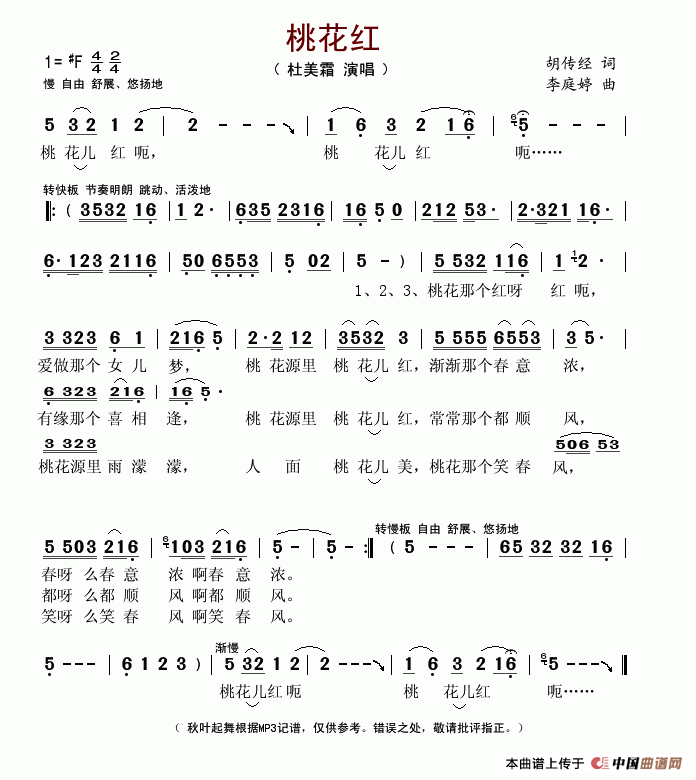 桃花红
1= #F 4/4 2/4
( 杜美霜 演唱 )
胡传经 词
慢 自由 舒展、悠扬地
李庭婷 曲
5 3 2 1 2 | 2 - - - | 1 6 3 2 1 6 | 6 5 - - - |
桃 花儿 红 呃, 桃 花儿 红 呃……
转快板 节奏明朗 跳动、活泼地
‖: ( 3532 16 | 1 2· | 635 2316 | 16 5 0 | 212 53· | 2·321 16· |
6·123 2116 | 50 6553 | 5 02 | 5 - ) | 5 532 116 | 1 1 2· |
1、2、3、桃花那个红呀 红 呃,
3 323 6 1 | 216 5 | 2·2 12 | 3532 3 | 5 555 6553 | 3 5· |
爱做那个 女 儿 梦, 桃 花源里 桃 花儿 红,渐渐那个春 意 浓,
6 323 216 | 16 5·
有缘那个 喜 相 逢, 桃 花源里 桃 花儿 红,常常那个都 顺 风,
3 323
506 53
桃花源里 雨 濛 濛, 人 面 桃 花儿 美,桃花那个笑 春 风,
转慢板 自由 舒展、悠扬地
5 503 216 | 6 103 216 | 5 - | 5 - :‖ ( 5 - - - | 65 32 32 16 |
春呀 么春 意 浓 啊春 意 浓。
都呀 么都 顺 风 啊都 顺 风。
笑呀 么笑 春 风 啊笑 春 风。
渐慢
5 - - - | 6 1 2 3 ) | 5 32 1 2 | 2 - - - | 1 6 3 2 16 | 6 5 - - - ‖
桃花儿红 呃 桃 花儿红 呃……
( 秋叶起舞根据MP3记谱,仅供参考。错误之处,敬请批评指正。)
本曲谱上传于 中国曲谱网